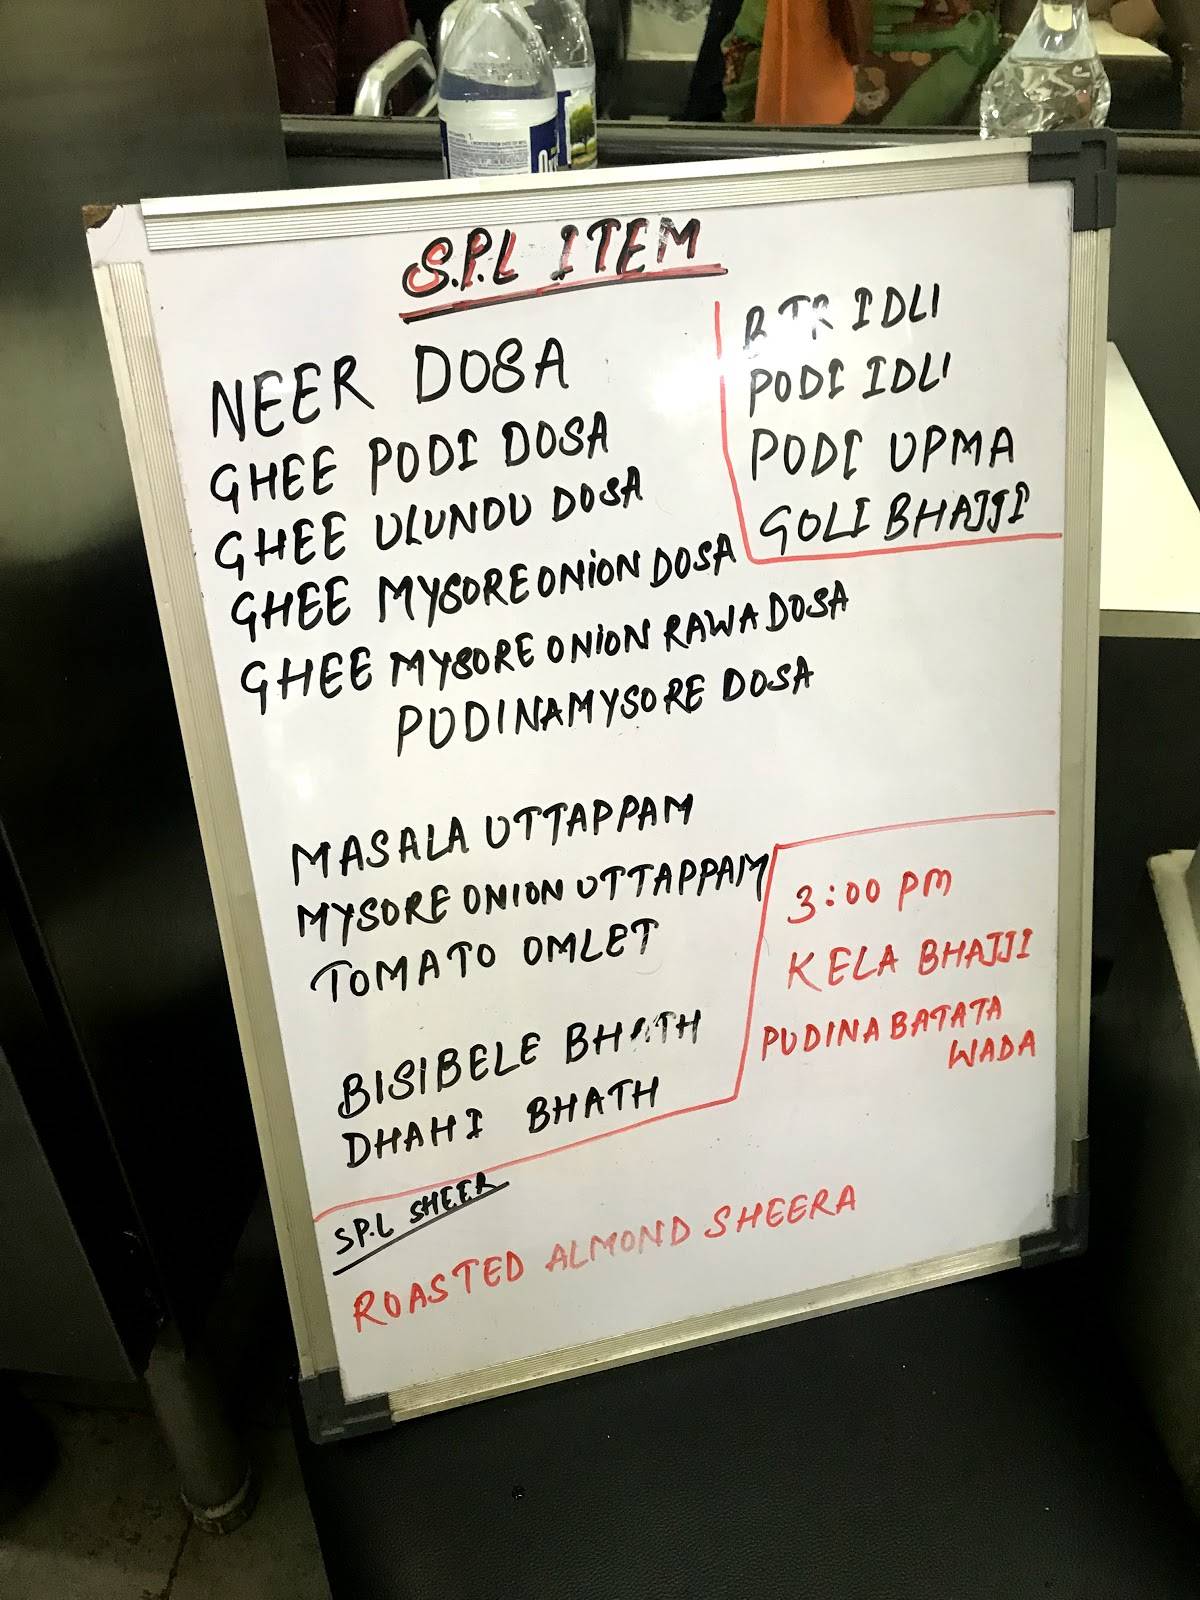 S.P.L ITEM
NEER DOSA
GHEE PODI DOSA
GHEE ULUNDU DOSA
GHEE MYSORE ONION DOSA
GHEE MYSORE ONION RAWA DOSA
PUDINA MYSORE DOSA
BTR IDLI
PODI IDLI
PODI UPMA
GOLI BHAJJI
MASALA UTTAPPAM
MYSORE ONION UTTAPPAM
TOMATO OMLET
BISIBELE BHATH
DHAHI BHATH
3:00 PM
KELA BHAJJI
PUDINA BATATA
WADA
SP.L SHEER
ROASTED ALMOND SHEERA